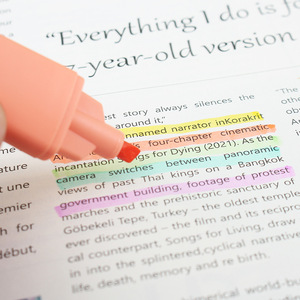 "Everything I do is fo
7-year-old version
est story always silences the
around it,"
nnamed narrator inKorakrit
four-chapter cinematic
incantation Songs for Dying (2021). As the
camera switches between panoramic
views of past Thai kings on a Bangkok
government building, footage of protest
marches and the prehistoric sanctuary of
Göbekli Tepe, Turkey – the oldest temple
ever discovered – the film and its recipro
cal counterpart, Songs for Living, draw
in into the splintered,cyclical narrative
life, death, memory and re birth.
"The
othe
obs
ature
t une
emier
h for
début,